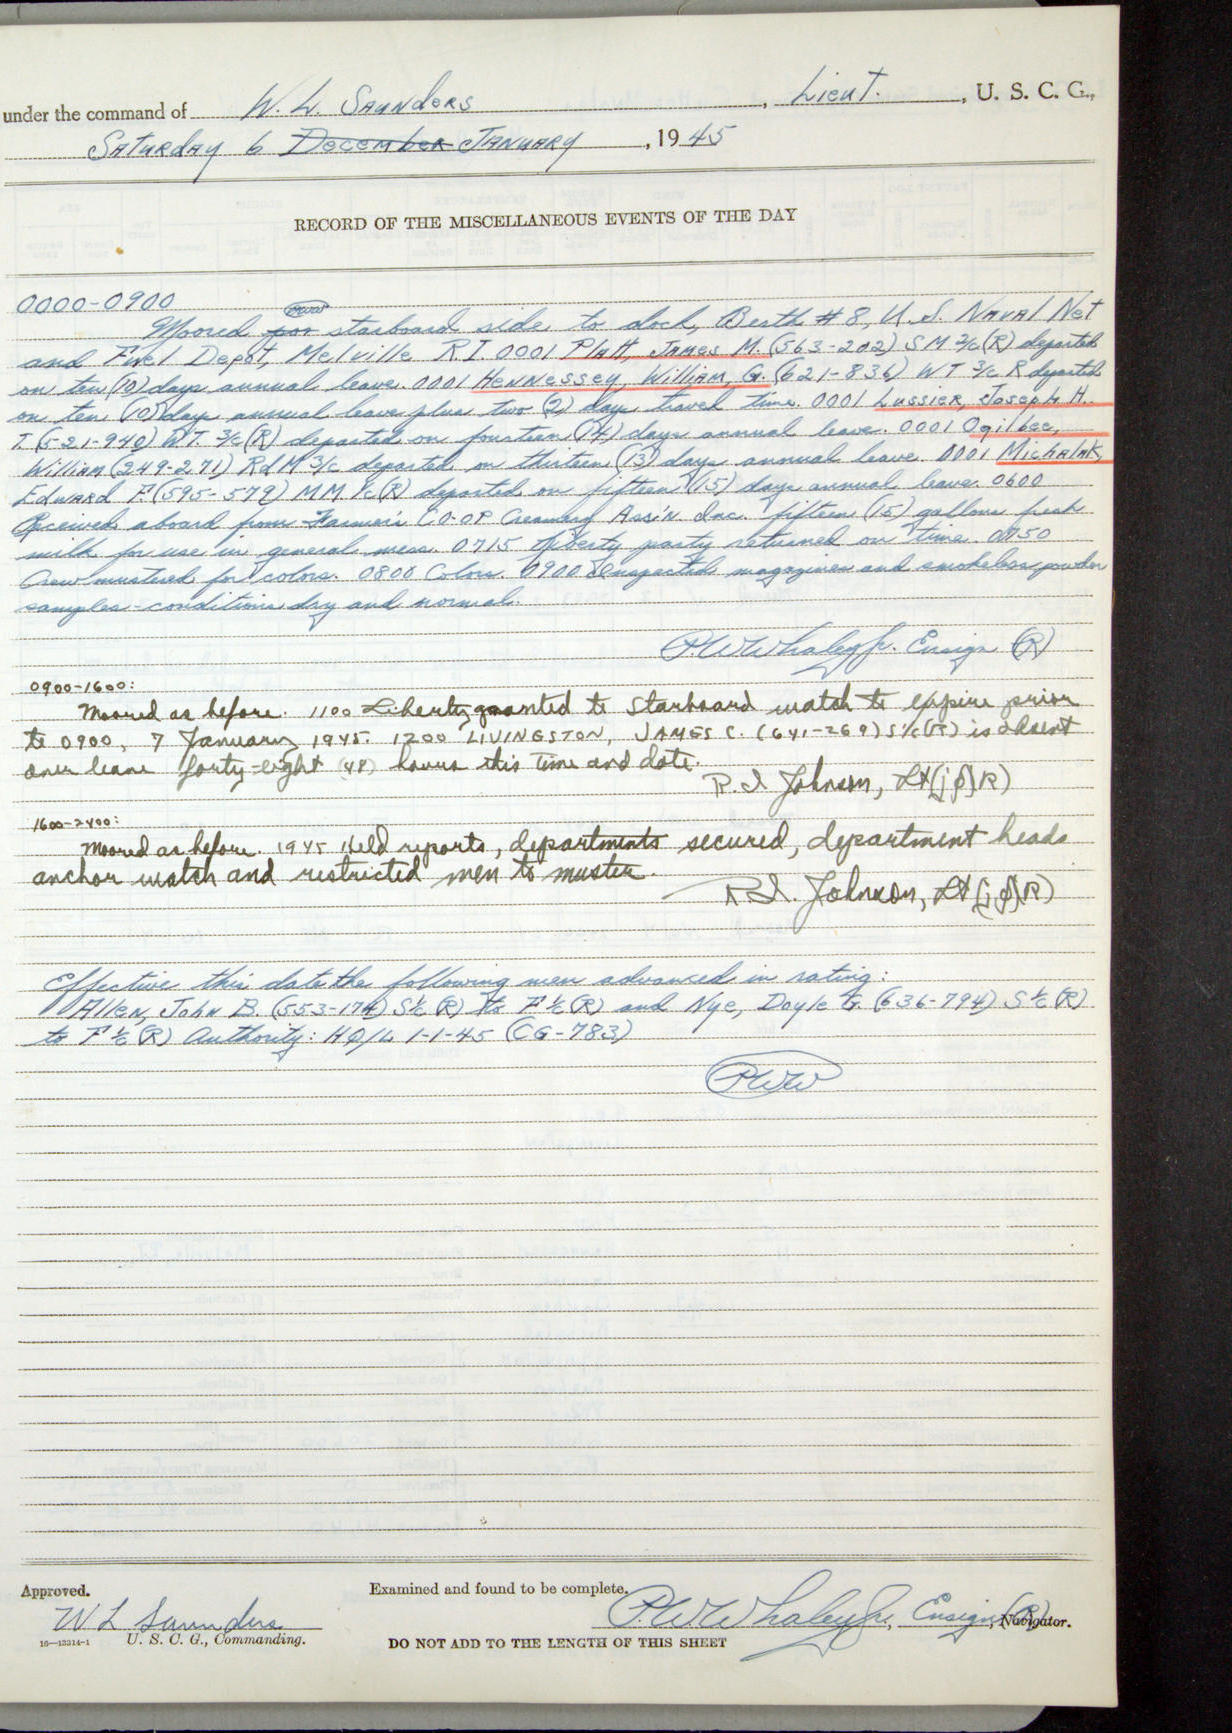 under the command of W. L. Saunders, Lieut., U. S. C. G.,
Saturday 6 December January, 1945
RECORD OF THE MISCELLANEOUS EVENTS OF THE DAY
0000-0900
PWW
Moored por starboard side to dock, Berth #8, U.S. Naval Net
and Fuel Depot, Melville R.I. 0001 Platt, James M. (563-202) SM 2/c (R) departed
on ten (10) days annual leave. 0001 Hennessey, William, G. (621-836) WT 3/c R departed
on ten (10) days annual leave plus two (2) days travel time. 0001 Lussier, Joseph H.
T. (521-940) WT. 3/c (R) departed on fourteen (14) days annual leave. 0001 Ogilbee,
William (249-271) RdM 3/c departed on thirteen (13) days annual leave. 0001 Michalak,
Edward F. (595-579) MM 1/c (R) departed on fifteen (15) days annual leave. 0600
Received aboard from Farmer's CO-OP Creamery Ass'n Inc. fifteen (15) gallons fresh
milk for use in general mess. 0715 Liberty party returned on time. 0750
Crew mustered for colors. 0800 Colors. 0900 Inspected magazines and smokeless powder
samples - conditions dry and normal.
P.W. Whaley Jr. Ensign (R)
0900-1600:
Moored as before. 1100 Liberty granted to starboard watch to expire prior
to 0900, 7 January 1945. 1200 LIVINGSTON, JAMES C. (641-269) S1/c(R) is absent
over leave forty-eight (48) hours this time and date.
R. I. Johnson, Lt(jg)(R)
1600-2400:
Moored as before. 1945 Held reports, departments secured, department heads
anchor watch and restricted men to muster.
R. I. Johnson, Lt(jg)(R)
Effective this date the following men advanced in rating:
Allen, John B. (553-174) S1/c (R) to F1/c (R) and Nye, Doyle G. (636-794) S1/c (R)
to F1/c (R) Authority: HQ/L 1-1-45 (CG-783)
PWW
Approved.
Examined and found to be complete.
W L Saunders
P.W. Whaley Jr., Ensign, (R) Navigator.
16—13314-1 U. S. C. G., Commanding.
DO NOT ADD TO THE LENGTH OF THIS SHEET